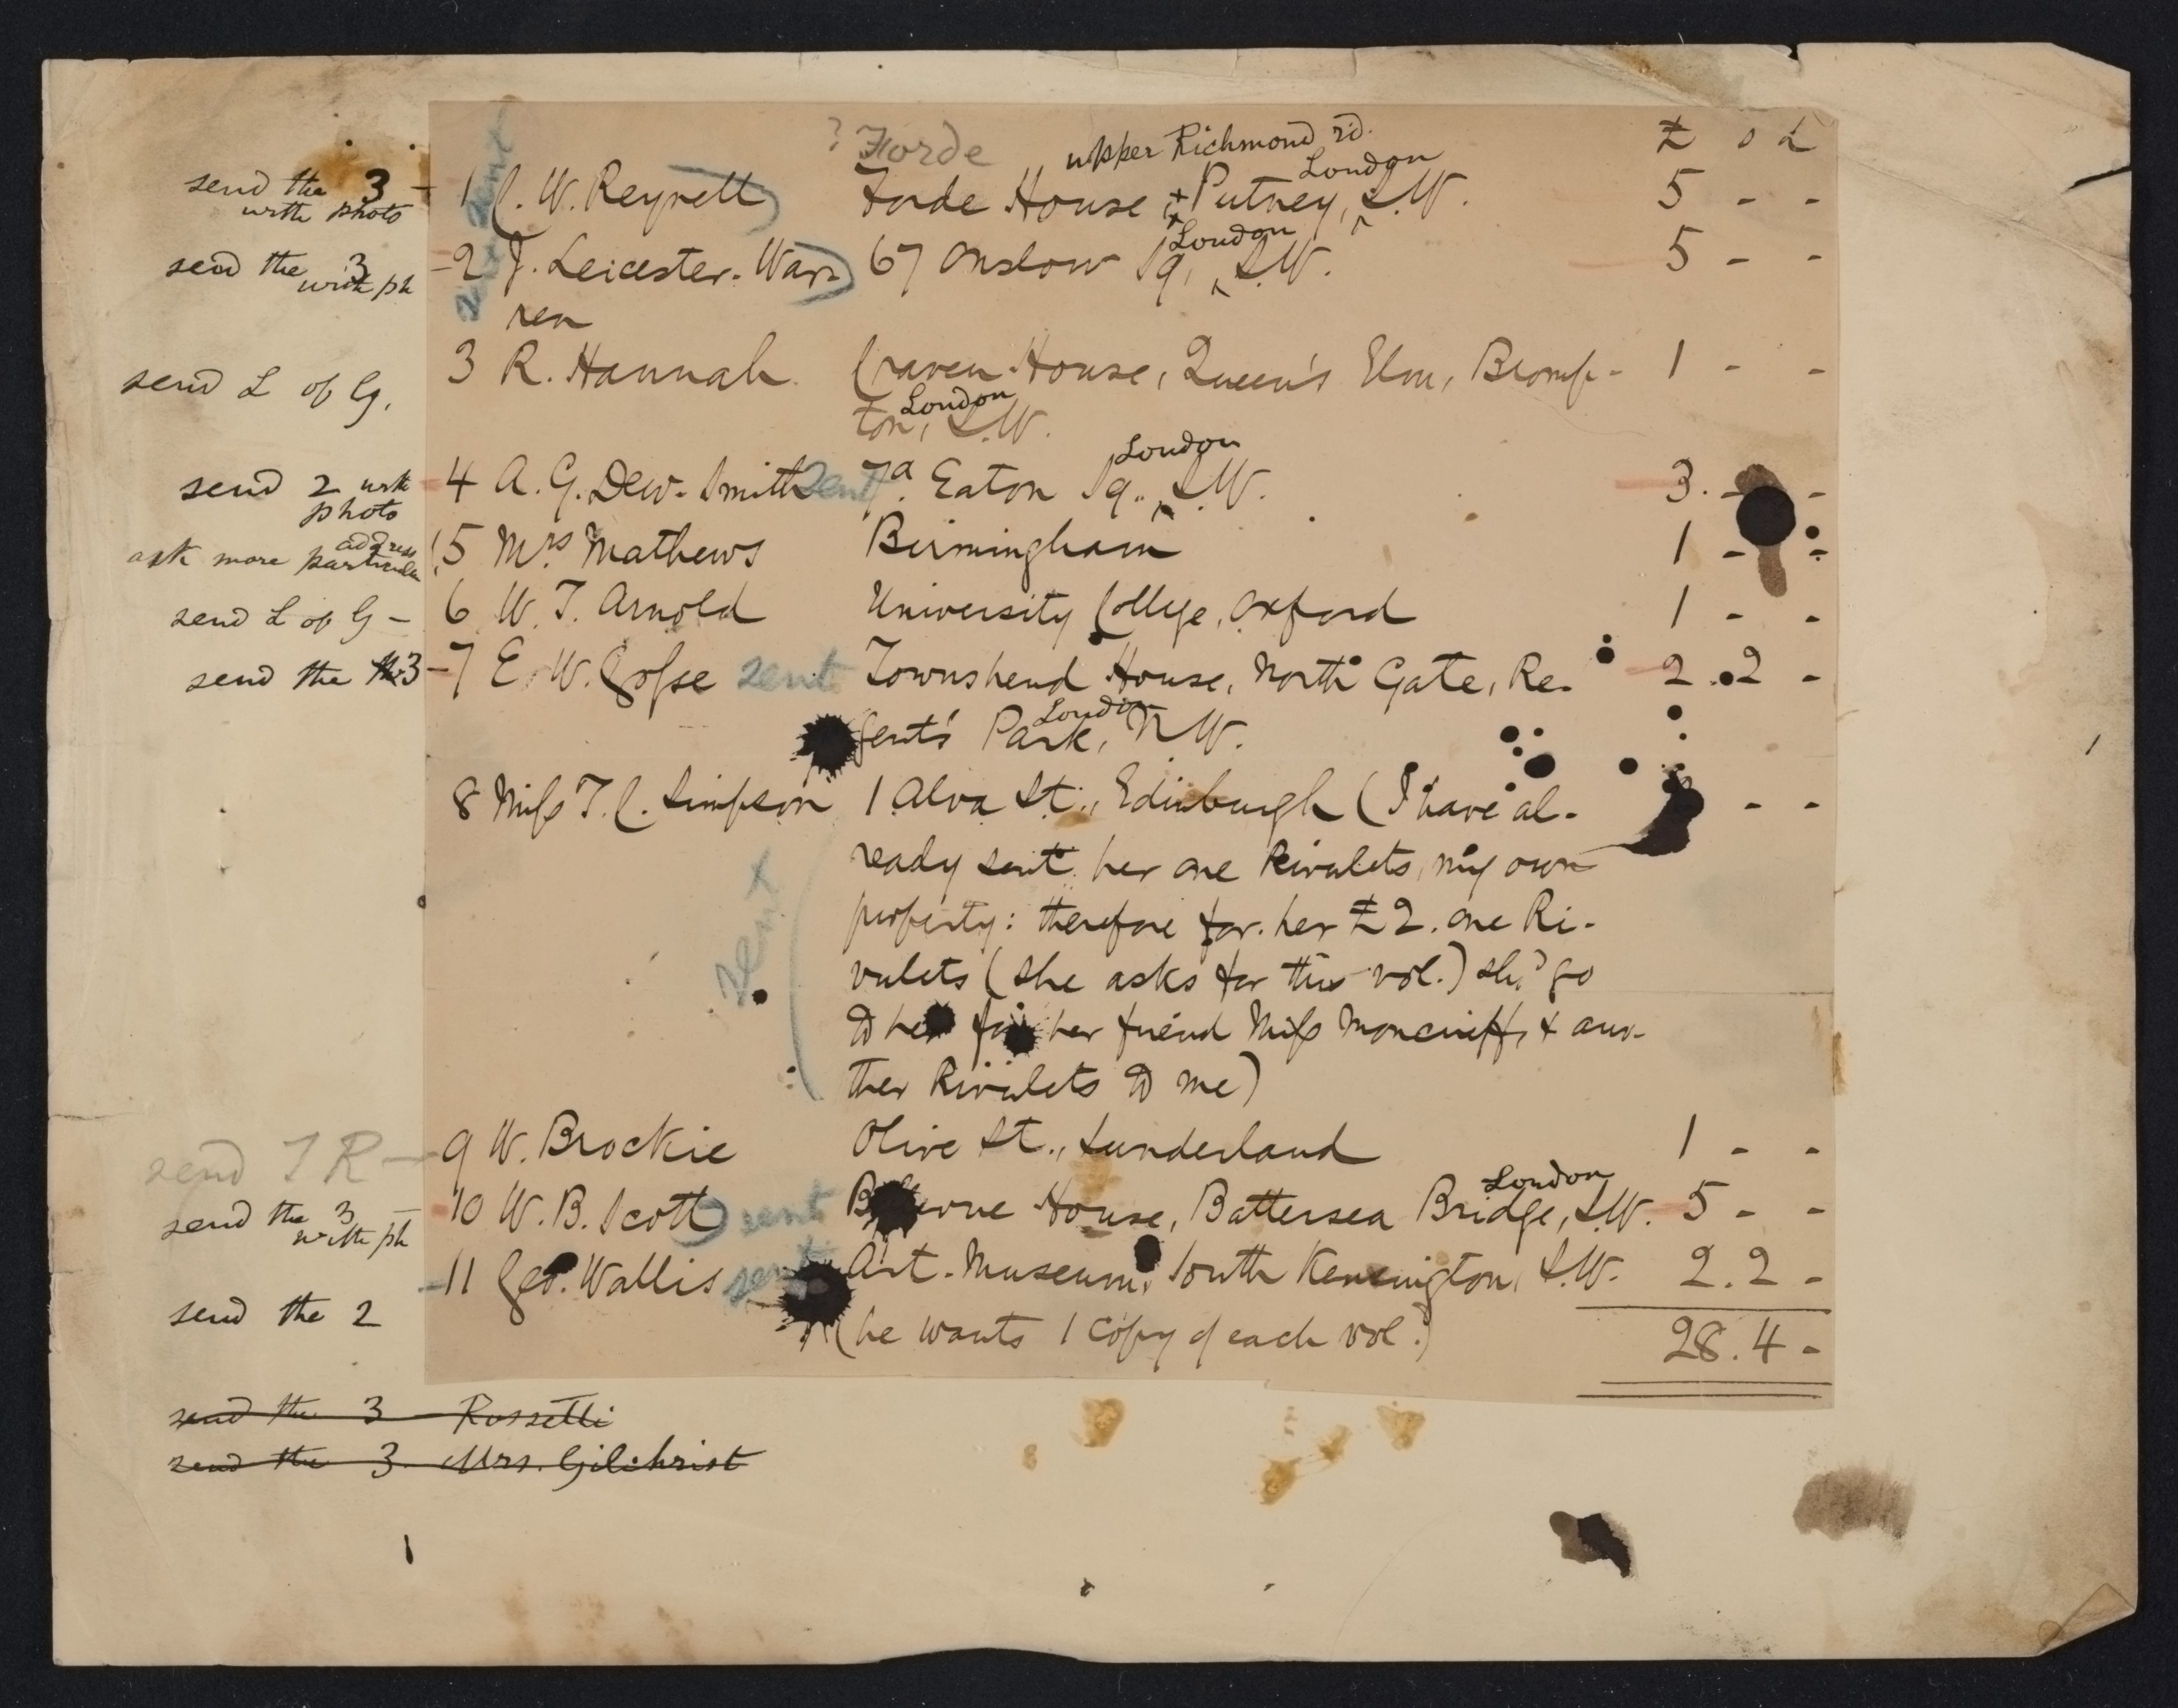 ? Forde upper Richmond rd. £ s d
send the 3 – 1 C. W. Reynell Forde House, Putney, London S.W. 5 - -
with photo
sent
send the 3 – 2 J. Leicester-War- 67 Onslow Sq., London S.W. 5 - -
with ph ren
sent
send L of G. 3 R. Hannah. Craven House, Queen's Elm, Bromp- 1 - -
ton, London S.W.
send 2 with 4 A. G. Dew-Smith sent 7a. Eaton Sq., London S.W. 3. - -
photo
ask more particular address 5 Mrs Mathews Birmingham 1 - -
send L of G – 6 W. T. Arnold University College, Oxford 1 - -
send the 3 – 7 E. W. Gosse sent Townshend House, North Gate, Re- 2.2 -
gent's Park, London N.W.
8 Miss T. C. Simpson 1 Alva St., Edinburgh (I have al- - -
ready sent her one Rivulets, my own
sent property: therefore for her £2. one Ri-
vulets (she asks for this vol.) shd. go
to her for her friend Miss Moncrieff, & ano-
ther Rivulets to me)
send T R – 9 W. Brockie Olive St., Sunderland 1 - -
send the 3 – 10 W. B. Scott sent House, Battersea Bridge, London S.W. 5 - -
with ph
– 11 Geo. Wallis sent Art-Museum, South Kensington, S.W. 2.2 -
send the 2 (he wants 1 copy of each vol.) 28.4 -
send the 3 – Rossetti
send the 3. Mrs. Gilchrist